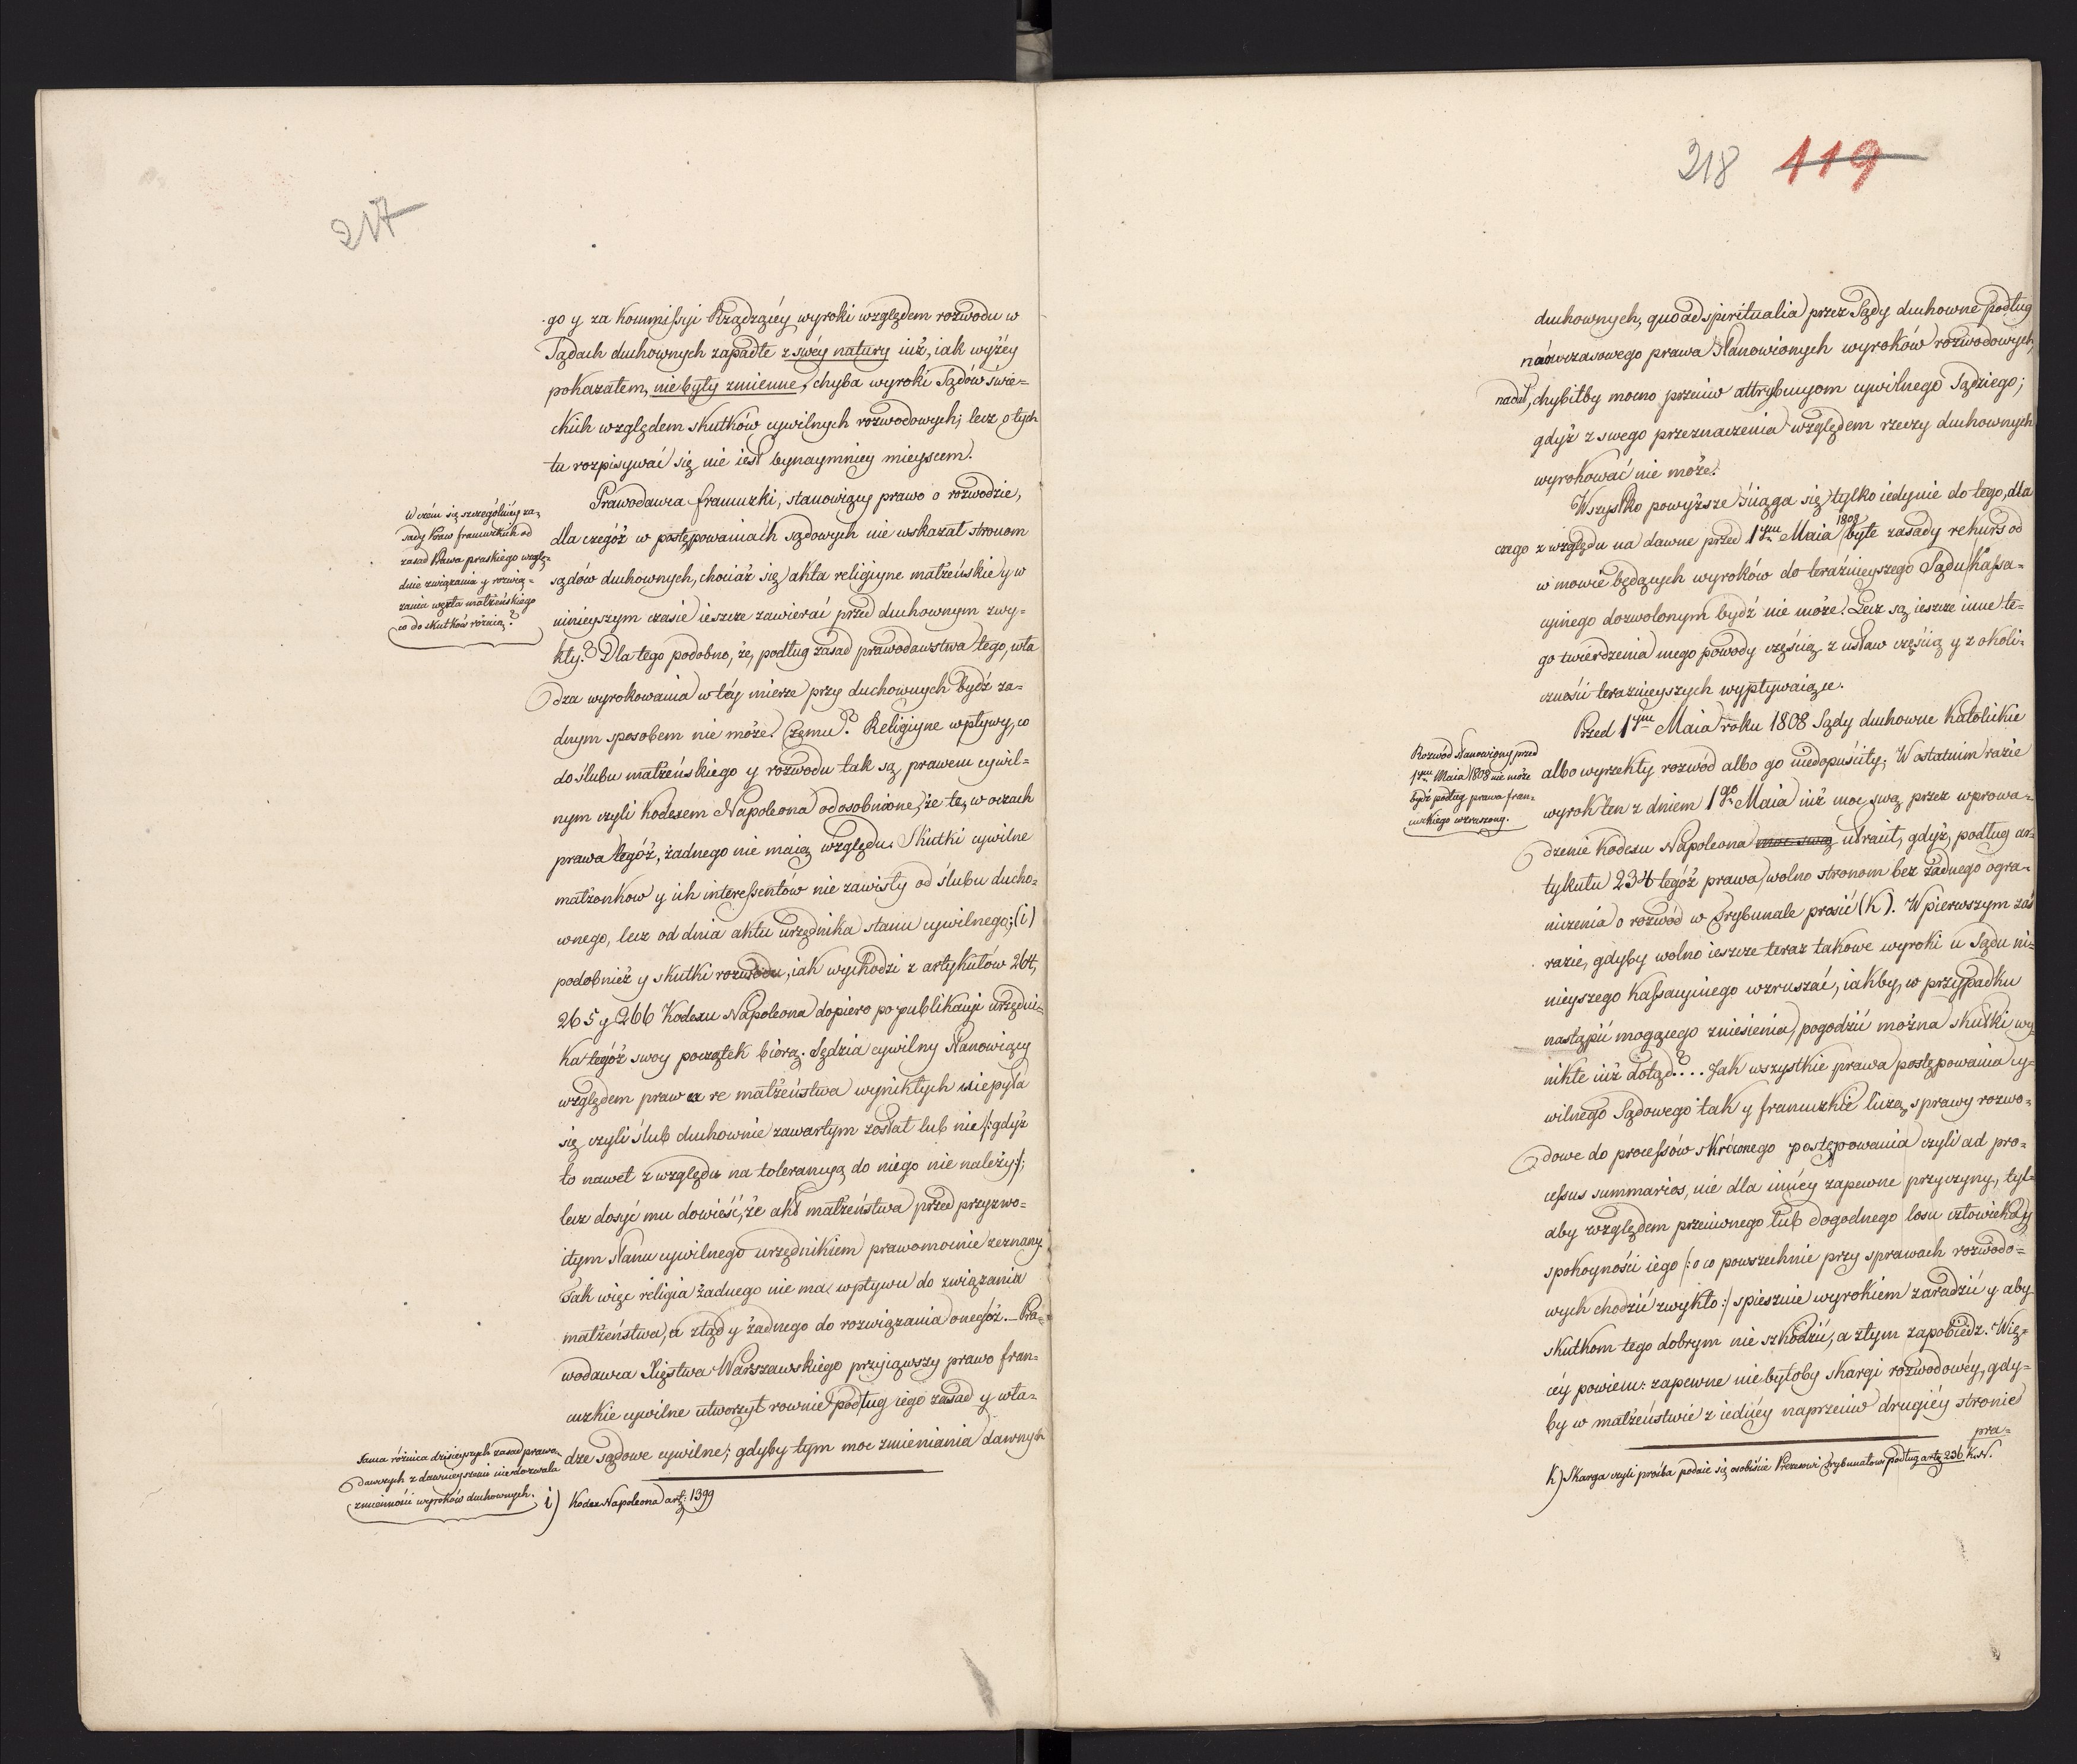 217
go y za Kommissyi Rządzącéy wyroki względem rozwodu w
Sądach duchownych zapadłe z swéy natury iuż, iak wyżéy
pokazałem, nie były zmienne, chyba wyroki Sądów świe=
ckich względem skutków cywilnych rozwodowych; lecz o tych
tu rozpisywać się nie iest bynaymniey mieyscem.
W czém się szczególniéy za=
sady Praw francuzkich od
zasad Prawa pruskiego wzglę=
dnie związania y rozwią=
zania węzła małżeńskiego
co do skutków różnią?
Prawodawca francuzki, stanowiący prawo o rozwodzie,
dla czegóż w postępowaniach sądowych nie wskazał stronom
sądów duchownych, chociaż się akta religiyne małżeńskie y w
ninieyszym czasie ieszcze zawierać przed duchownym zwy=
kły? Dla tego podobno, że, podług zasad prawodawstwa tego, wła
dza wyrokowania w téy mierze przy duchownych bydź ża=
dnym sposobem nie może. Czemu? Religiyne wpływy, co
do ślubu małżeńskiego y rozwodu tak są prawem cywil=
nym czyli Kodexem Napoleona odosobnione, że te, w oczach
prawa tegóż, żadnego nie maią względu. Skutki cywilne
małżonkow y ich interessentów nie zawisły od ślubu ducho=
wnego, lecz od dnia aktu urzędnika stanu cywilnego; (i)
podobnież y skutki rozwodu, iak wychodzi z artykułów 264,
265 y 266 Kodexu Napoleona dopiero po publikacyi urzędni=
ka tegóż swoy początek biorą. Sędzia cywilny stanowiący
względem praw ex re małżeństwa wynikłych nie pyta
się, czyli ślub duchownie zawartym został lub nie /: gdyż
to nawet z względu na tolerancyą do niego nie należy :/;
lecz dosyć mu dowieść, że akt małżeństwa przed przyzwo=
itym stanu cywilnego urzędnikiem prawomocnie zeznany.
Jak więc religia żadnego nie ma wpływu do związania
małżeństwa, a ztąd y żadnego do rozwiązania onegóż. _ Pra=
wodawca Xięstwa Warszawskiego przyiąwszy prawo fran=
cuzkie cywilne utworzył rownie podług iego zasad y wła=
dze sądowe cywilne; gdyby tym moc zmieniania dawnych
Sama różnica dzisieyszych zasad prawo
dawczych z dawnieyszemi niedozwala
zmienności wyroków duchownych.
i) Kodex Napoleona art: 1399
218 119
duchownych, quoad spiritualia przez Sądy duchowne podług
náówczasowego prawa stanowionych wyroków rozwodowych
nadał, chybiłby mocno przeciw attrybucyom cywilnego Sędziego;
gdyż z swego przeznaczenia względem rzeczy duchownych
wyrokować nie może.
Wszystko powyższe ściąga się tylko iedynie do tego, dla
czego z względu na dawne przed 1ym Maia 1808 byłe zasady rekurs od
w mowie będących wyroków do teraźnieyszego Sądu Kassa=
cyinego dozwolonym bydź nie może. Lecz są ieszcze inne te=
go twierdzenia mego powody częścią z ustaw częścią y z okoli=
czności teraźnieyszych wypływaiące.
Rozwód stanowiony przed
1ym Maia 1808 nie może
bydź podług prawa fran=
cuzkiego wzruszony.
Przed 1ym Maia roku 1808 Sądy duchowne Katolickie
albo wyrzekły rozwód albo go niedopuściły; W ostatnim razie
wyrok ten z dniem 1go Maia iuż moc swą przez wprowa=
dzenie Kodexu Napoleona moc swą utracił, gdyż, podług ar=
tykułu 234 tegóż prawa, wolno stronom bez żadnego ogra=
niczenia o rozwód w Trybunale prosić (k). W pierwszym zaś
razie, gdyby wolno ieszcze teraz takowe wyroki u Sądu ni=
nieyszego Kassacyinego wzruszać, iakby, w przypadku
nastąpić mogącego zniesienia, pogodzić można skutki wy=
nikłe iuż dotąd? ... Jak wszystkie prawa postępowania cy=
wilnego Sądowego tak y francuzkie liczą sprawy rozwo=
dowe do processów skróconego postępowania czyli ad pro=
cessus summarios, nie dla innéy zapewne przyczyny, tyl=
aby względem przeciwnego lub dogodnego losu człowieka y
spokoyności iego /: o co powszechnie przy sprawach rozwodo=
wych chodzić zwykło :/ spiesznie wyrokiem zaradzić y aby
skutkom tego dobrym nie szkodzić, a złym zapobiedz. Wię=
céy powiem: zapewne nie byłoby skargi rozwodowéy, gdy=
by w małżeństwie z iednéy naprzeciw drugiéy stronie
pra=
k) Skarga czyli prośba podaie się osobiście Prezesowi Trybunałow podług art: 236 K. N.